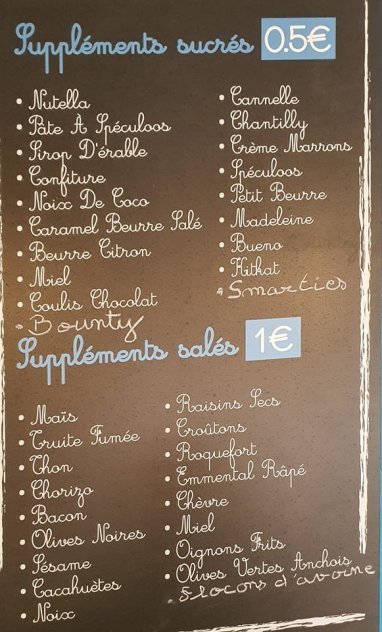 Suppléments sucrés 0.5€
• Nutella
• Pâte À Spéculoos
• Sirop D'érable
• Confiture
• Noix De Coco
• Caramel Beurre Salé
• Beurre Citron
• Miel
• Coulis Chocolat
• Bounty
• Cannelle
• Chantilly
• Crème Marrons
• Spéculoos
• Petit Beurre
• Madeleine
• Bueno
• Kitkat
• Smarties
Suppléments salés 1€
• Maïs
• Truite Fumée
• Thon
• Chorizo
• Bacon
• Olives Noires
• Sésame
• Cacahuètes
• Noix
• Raisins Secs
• Croûtons
• Roquefort
• Emmental Râpé
• Chèvre
• Miel
• Oignons Frits
• Olives Vertes Anchois
• Flocons d'avoine